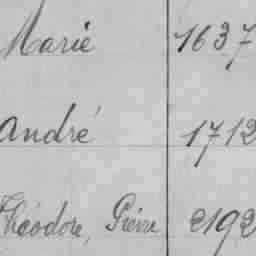 Marie 1637
André 1712
Théodore, Pierre 2192